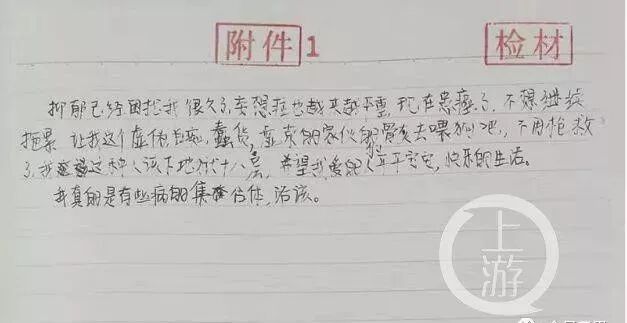 附件1
检材
抑郁已经困扰我很久了,妄想症也越来越严重,现在患癌了,不想继续
拖累 让我这个虚伪,自私,蠢货,虚荣的家伙的骨灰去喂狗吧,不用抢救
了,我这种人该下地狱十八层,希望我爱的人平平安安,快乐的生活。
我真的是有些病的集合体,活该。
上游